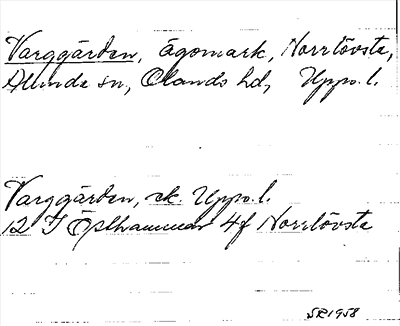 Varggärden, ägomark, Norrlövsta,
Alunda sn, Olands hd, Upps. l.
Varggärden, sk. Upps. l.
12 I Öplhammar 4f Norrlövsta
SR1958